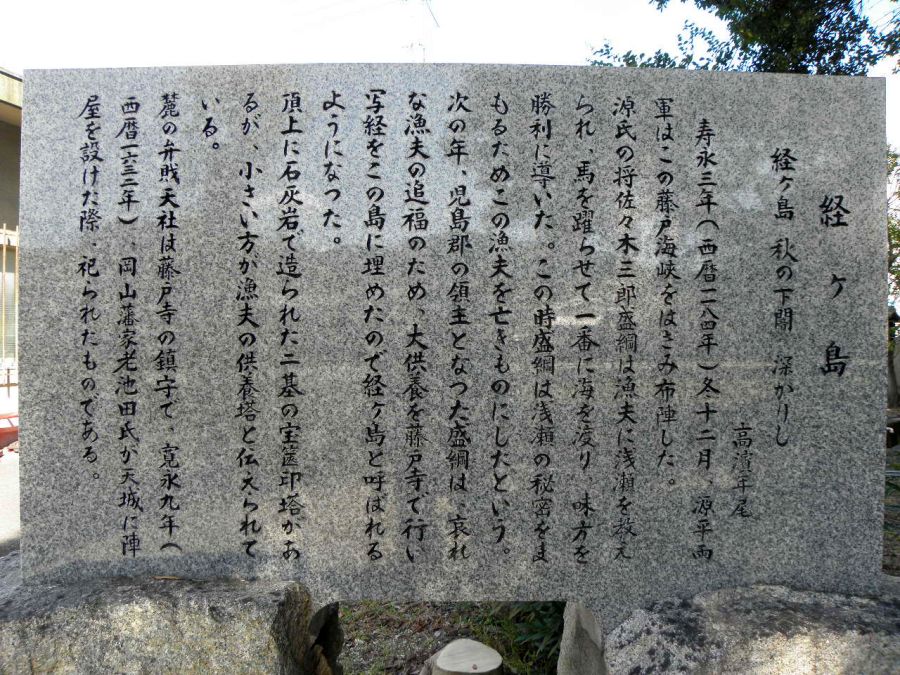 経ヶ島
経ヶ島 秋の下闇 深かりし
高濱年尾
寿永三年(西暦一一八四年)冬十二月、源平両
軍はこの藤戸海峡をはさみ布陣した。
源氏の将佐々木三郎盛綱は漁夫に浅瀬を教え
られ、馬を躍らせて一番に海を渡り、味方を
勝利に導いた。この時盛綱は浅瀬の秘密をま
もるためこの漁夫を亡きものにしたという。
次の年、児島郡の領主となつた盛綱は、哀れ
な漁夫の追福のため、大供養を藤戸寺で行い
写経をこの島に埋めたので経ヶ島と呼ばれる
ようになつた。
頂上に石灰岩で造られた二基の宝篋印塔があ
るが、小さい方が漁夫の供養塔と伝えられて
いる。
麓の弁戝天社は藤戸寺の鎮守で、寛永九年(
西暦一六三二年)、岡山藩家老池田氏が天城に陣
屋を設けた際、祀られたものである。